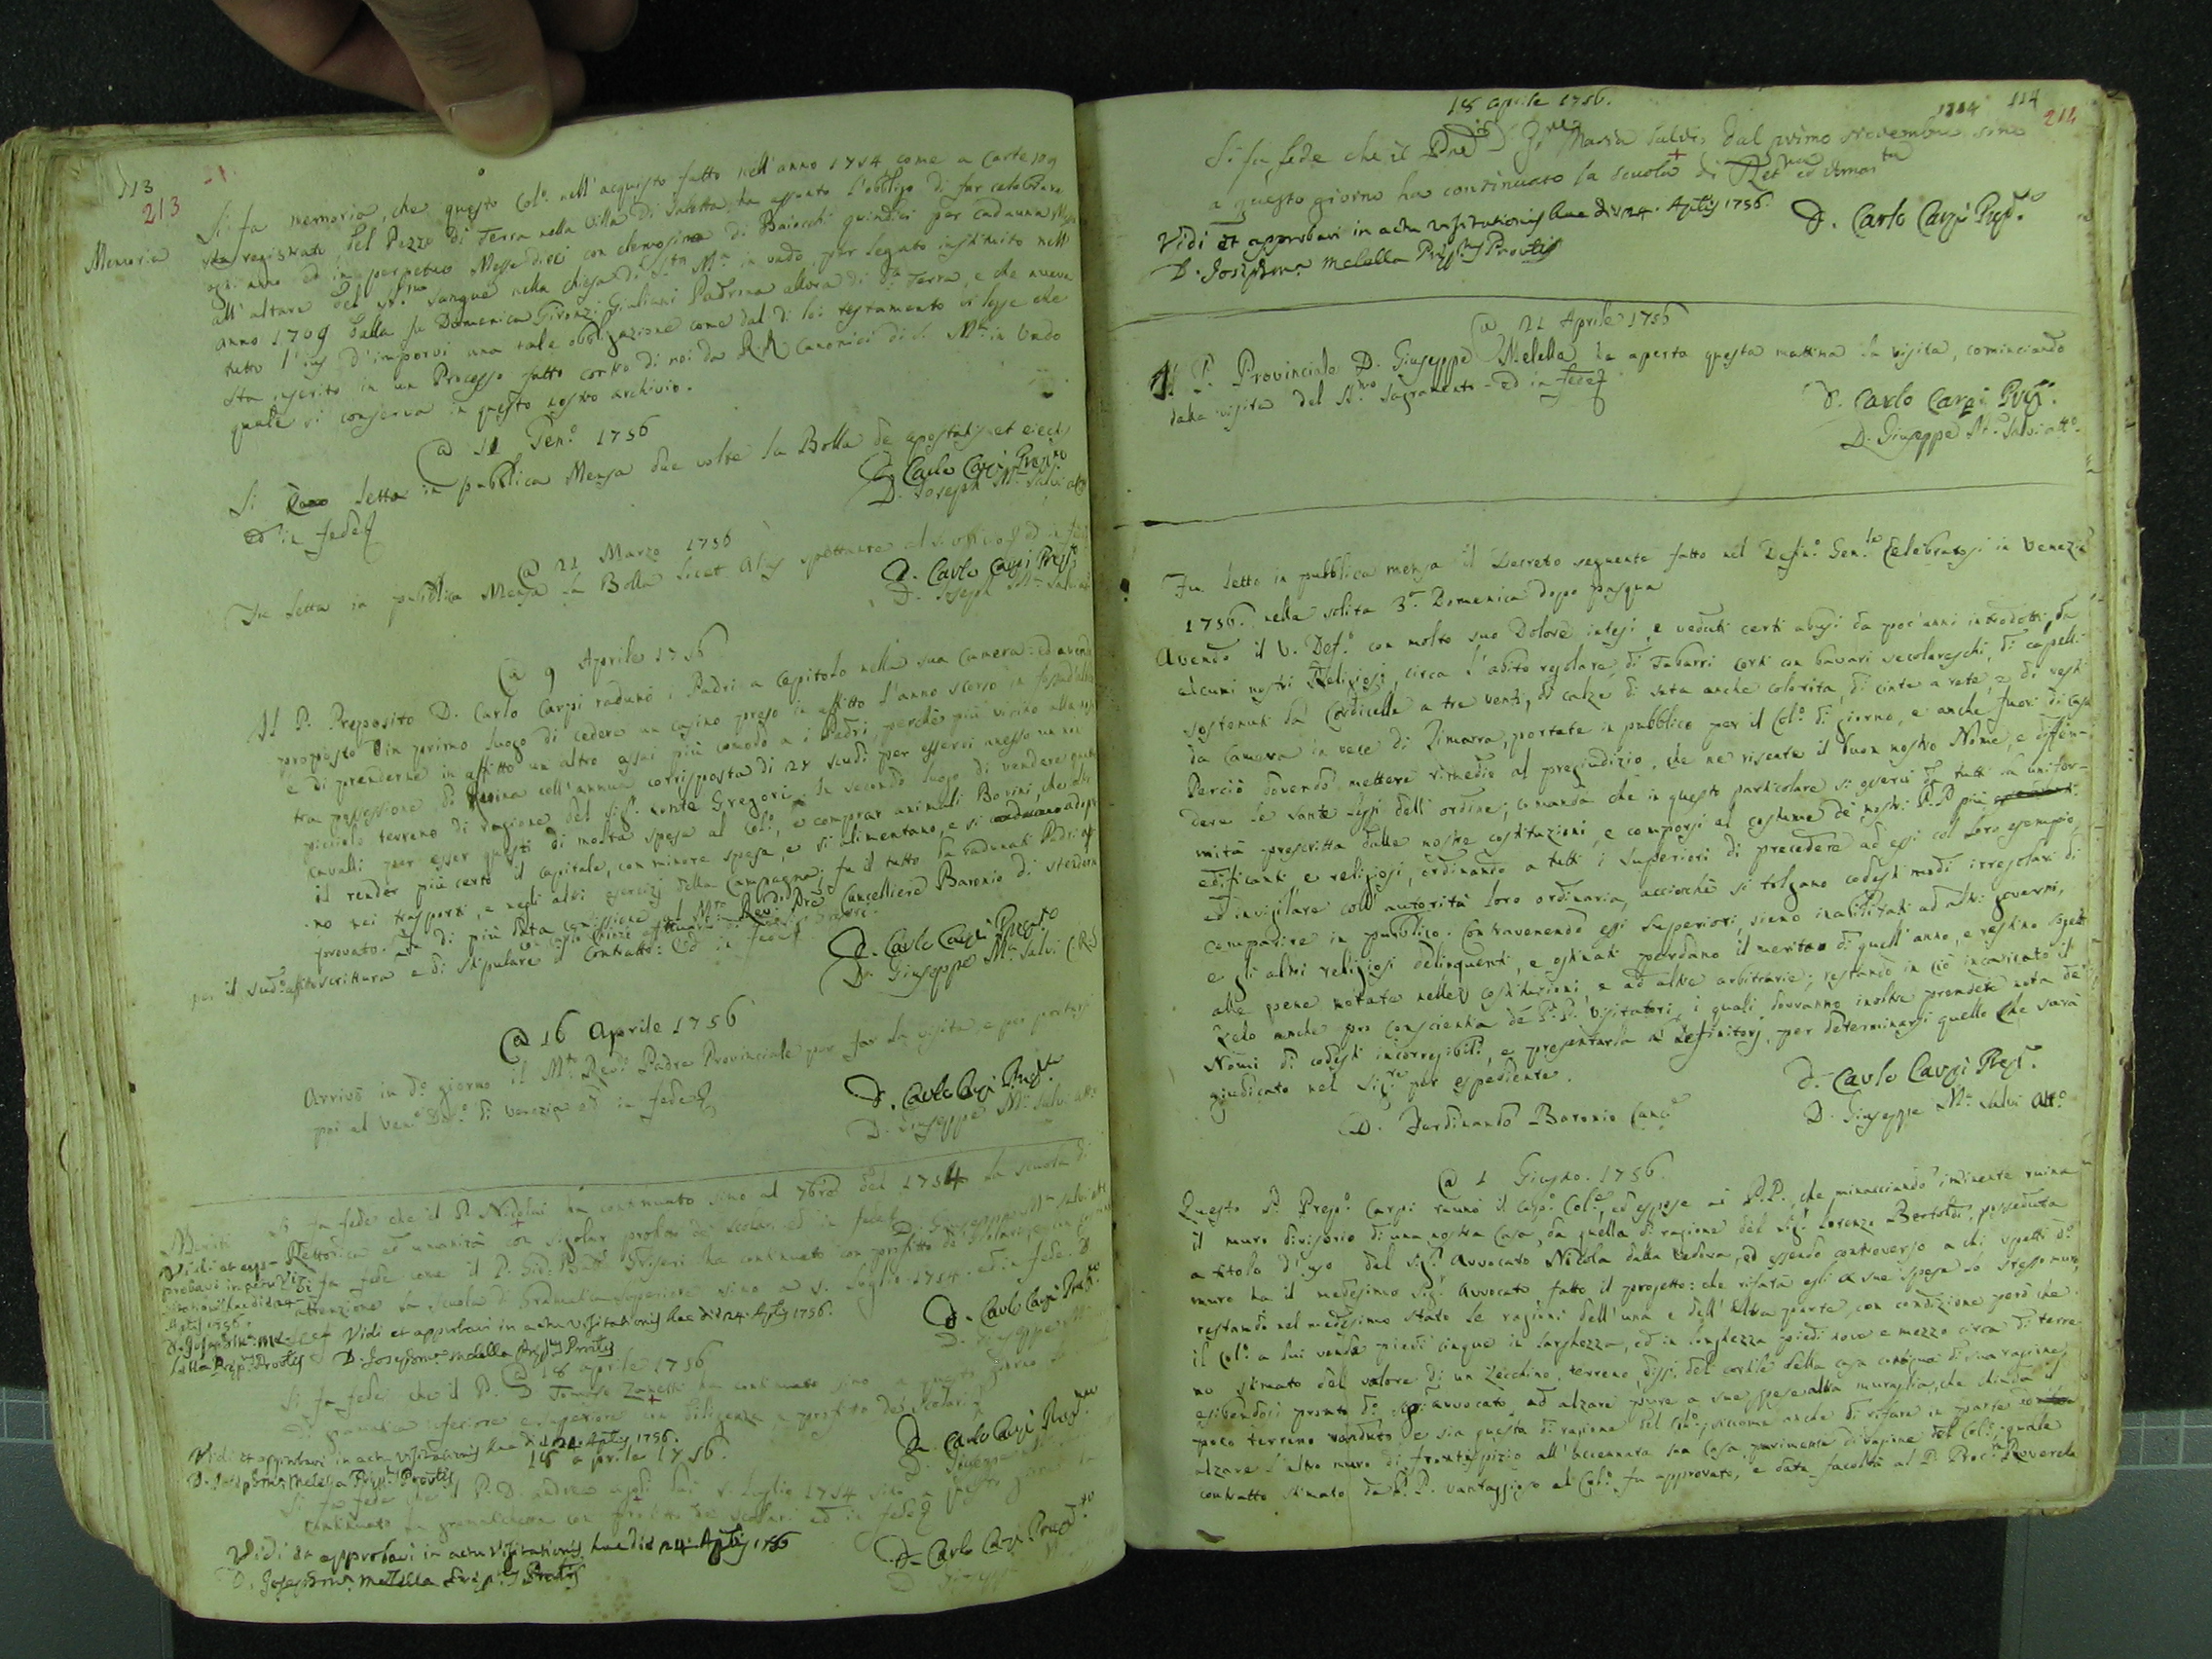 113
213
Memoria
Si fa memoria, che questo Col.º nell'acquisto fatto nell'anno 1754 come a Carte 109
registrato del Pezzo di Terra nella Villa di Saletta, ha assonto l'obbligo di far celebrare
ogni anno ed in perpetuo Messe dieci con elemosina di Baiocchi quindici per cadauna
all'altare del SS.mo Sangue nella chiesa di S.ta M.a in vado, per legato instituito nell'
anno 1709 dalla fu Domenica Gironzi Giuliani Padrona allora di d.ª Terra, e che aveva
tutto l'ius d'imporvi una tale obbligazione come dal di lei testamento si legge che
sta inserito in un Processo fatto contro di noi da R.R. Canonici di S. M.ª in Vado
quale si conserva in questo nostro archivio.
@ 11 Gen.º 1756
Si letta in pubblica Mensa due volte la Bolla de apostatis, et eiectis
ed in fede
D. Carlo Carpi Prep.to
D. Joseph M.ª Salvi att.º
@ 21 Marzo 1756
Fu letta in pubblica Mensa la Bolla licet alias spettante al S. Offizio ed in fede
D. Carlo Carpi Prep.to
D. Joseph M.ª Salvi att.
@ 9 Aprile 1756
Il P. Preposito D. Carlo Carpi radunò i Padri a Capitolo nella sua Camera: ed avendo
proposto in primo luogo di cedere un casino preso in affitto l'anno scorso in
e di prenderne in affitto un altro assai più comodo a i Padri, perchè più vicino alla nos-
tra possessione di Ravina coll'annua corrisposta di 24 scudi per esserci anesso un
picciolo terreno di ragione del Sig.r Conte Gregori. In secondo luogo di vendere
cavalli per esser questi di molta spesa al Col.º, e comprar animali Bovini, che
il render più certo il capitale, con minore spesa, e si alimentano, e si
no nei trasporti, e negli altri esercizj della Campagna; fu il tutto da radunati Padri ap-
provato. Fu di più data comissione al M.to Rev.do Pre Cancelliere Baronio di stendere
per il sud.º affitto scrittura e di stipulare il Contratto: Ed in fede
D. Carlo Carpi Prep.to
D. Giuseppe M.ª Salvi C.R.S.
@ 16 Aprile 1756
Arrivò in d.º giorno il M.to Rev.do Padre Provinciale per far la visita e per portarsi
poi al Ven. Def.º di Venezia ed in fede
D. Carlo Carpi Prep.to
D. Giuseppe M.ª Salvi att.º
Meriti
Si fa fede che il P. Nicolai ha continuato sino al 7bre del 1754 la scuola di
Rettorica ed umanità con singolar profitto de' scolari ed in fede
D. Giuseppe M.ª Salvi att.
Vidi et ap-
probavi in actu Vis-
itationis hac die 24
Aplis 1756
D. Joseph M.ª Me-
lella Prep.tus Prov.lis
Si fa fede come il P. Gio: Batt.ª Friseri ha continuato con profitto de' scolari, e con
attenzione la scuola di Gramatica superiore sino a 5. Luglio 1754. ed in fede.
D. Carlo Carpi Prep.to
Vidi et approbavi in actu Visitationis hac die 24. Aplis 1756.
D. Joseph M.ª Melella Prep.tus Prov.lis
@ 18 aprile 1756
Si fa fede che il P. D. Tomaso Zanetti ha continuato sino a questo giorno la
di gramatica inferiore e superiore con diligenza, e profitto de' scolari
D. Carlo Carpi Prep.to
D. Giuseppe
Vidi et approbavi in actu Visitationis hac die 24. Aplis 1756.
D. Joseph M.ª Melella Prep.tus Prov.lis
18 aprile 1756.
Si fa fede che il P. D. Andrea dai 5. Luglio 1754 sino a questo giorno ha
continuato la con profitto dei scolari ed in fede
D. Carlo Carpi Prep.to
Vidi et approbavi in actu Visitationis hac die 24. Aplis 1756
D. Joseph M.ª Melella Prep.tus Prov.lis
114
214
18 aprile 1756.
Si fa fede che il Pad.e D. Gio Maria Salvi, dal primo novembre sino
a questo giorno ha continuato la scuola di Ret.ca ed Uman.tà
D. Carlo Carpi Prep.º
Vidi et approbavi in actu visitationis hac die 24. Aplis 1756.
D. Joseph M.ª Melella Prep.tus Prov.lis
@ 21 Aprile 1756
Il P. Provinciale D. Giuseppe Melella ha aperta questa mattina la visita, cominciando
dalla visita del SS.mo Sagramento ed in fede
D. Carlo Carpi Prep.
D. Giuseppe M.ª Salvi att.º
Fu letto in pubblica mensa il Decreto seguente fatto nel Defin.º Gen.le Celebratosi in Venezia
1756. nella solita 3.ª Domenica dopo Pasqua
Avendo il V. Def.º con molto suo Dolore intesi, e veduti certi abusi da poc'anni introdotti, da
alcuni nostri Religiosi, circa l'abito regolare, di Tabarri corti con bavari secolareschi, di capelli
sostenuti da Cordicelle a tre venti, di calze di seta anche colorita, di cinte a rete, e di vesti
da Camera in vece di Zimarra, portate in pubblico per il Col.º di giorno, e anche fuori di Casa
Perciò dovendo mettere rimedio al pregiudizio, che ne risente il buon nostro Nome, e offen-
dere le sante leggi dell'ordine; comanda che in questo particolare si osservi da tutti la unifor-
mità prescritta dalle nostre costituzioni, e comporsi al costume de' nostri P.P. più
edificanti e religiosi, ordinando a tutti i superiori di precedere ad essi col loro esempio,
ed invigilare coll'autorità loro ordinaria, acciocchè si tolgano codesti modi irregolari di
comparire in pubblico. Contravenendo essi Superiori, sieno inabilitati ad altri governi,
e gli altri religiosi delinquenti, e ostinati perdano il merito di quell'anno, e restino sogetti
alle pene notate nelle costituzioni, e ad altre arbitrarie; restando in ciò incaricato il
zelo anche pro Conscientia de' P.P. Visitatori, i quali dovranno inoltre prendere nota de'
Nomi di codesti incorregibili, e presentarla a' Definitorj, per determinarsi quello che sarà
giudicato nel Sig.re per espediente.
D. Ferdinando Baronio Canc.e
D. Carlo Carpi Prep.
D. Giuseppe M.ª Salvi Att.º
@ 1 Giugno. 1756.
Questo P. Prep.º Carpi raunò il Cap.º Col.le, ed espose ai P.P., che minacciando iminente ruina
il muro divisorio di una nostra Casa, da quella di ragione del Sig.r Lorenzo Bertoldi, posseduta
a titolo d'uso del Sig.r Avvocato Nicola dalla Vedova, ed essendo controverso a chi spetti d.º
muro ha il medesimo Sig.r Avvocato fatto il progetto: che rifarà egli a sue spese lo stesso muro,
restando nel medesimo stato le ragioni dell'una e dell'altra parte, con condizione però che
il Col.º a lui venda piedi cinque in larghezza, ed in longhezza piedi nove e mezzo circa di terre-
no stimato del valore di un Zecchino, terreno, dissi, del cortile della casa contigua di sua ragione,
esibendosi pronto d.º Sig.r avvocato ad alzare pure a sue spese altra muraglia, che chiuda il
poco terreno venduto, e sia questa di ragione del Col.º; siccome anche di rifare in parte ed
alzare l'altro muro di frontispizio all'accennata sua Casa, parimente di ragione del Col.º; quale
contratto stimato da P.P. vantaggioso al Col.º fu approvato, e data facoltà al P. Proc.re Roverela